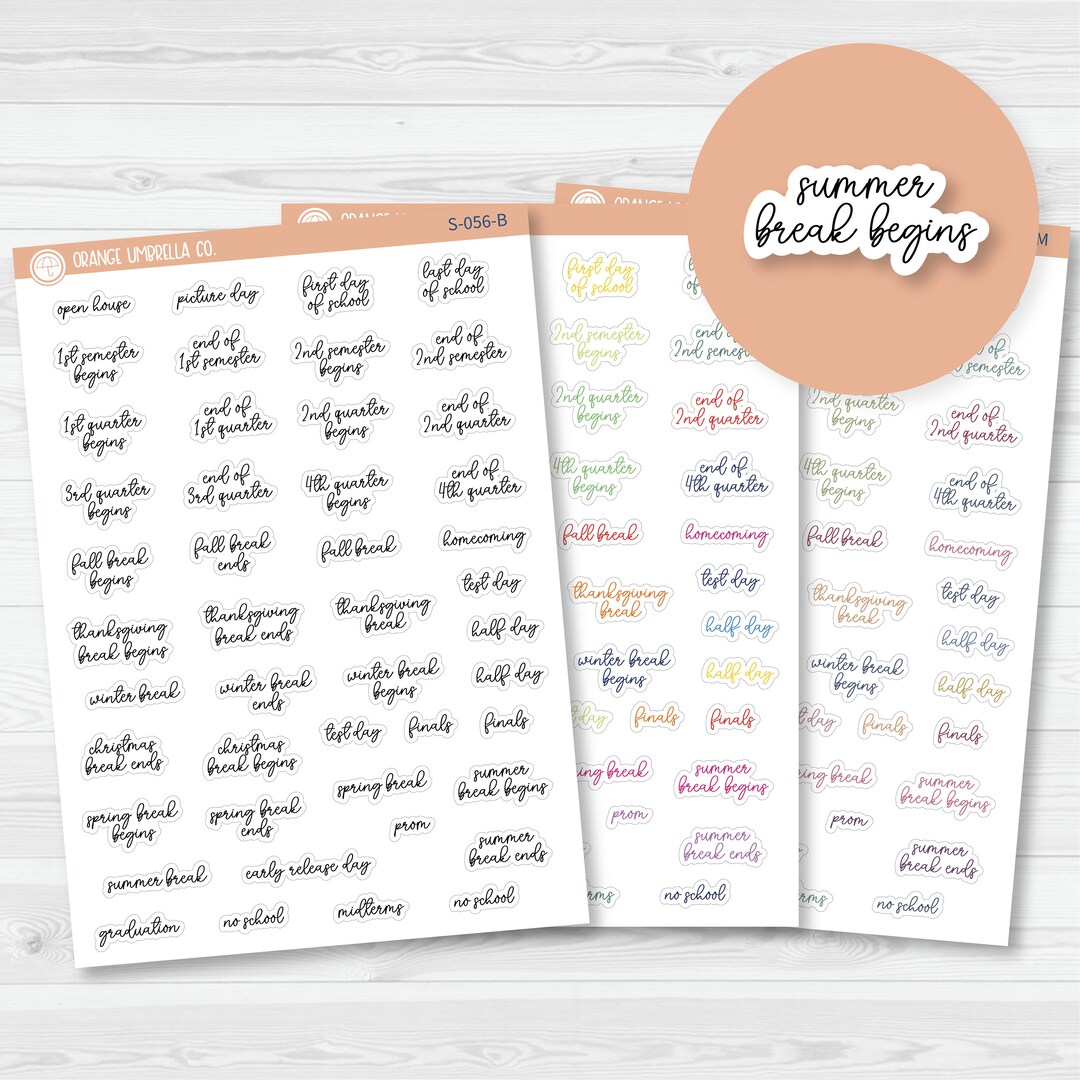 summer
break begins
ORANGE UMBRELLA CO.
S-056-B
open house
picture day
first day
of school
last day
of school
1st semester
begins
end of
1st semester
2nd semester
begins
end of
2nd semester
1st quarter
begins
end of
1st quarter
2nd quarter
begins
end of
2nd quarter
3rd quarter
begins
end of
3rd quarter
4th quarter
begins
end of
4th quarter
fall break
begins
fall break
ends
fall break
homecoming
test day
thanksgiving
break begins
thanksgiving
break ends
thanksgiving
break
half day
winter break
winter break
ends
winter break
begins
half day
test day
finals
finals
christmas
break ends
christmas
break begins
spring break
summer
break begins
spring break
begins
spring break
ends
prom
summer
break ends
summer break
early release day
graduation
no school
midterms
no school
first day
of school
2nd semester
begins
2nd quarter
begins
end of
2nd quarter
4th quarter
begins
end of
4th quarter
fall break
homecoming
test day
thanksgiving
break
half day
winter break
begins
half day
day
finals
finals
break
summer
break begins
prom
summer
break ends
no school
M
of
semester
2nd quarter
begins
end of
2nd quarter
4th quarter
begins
end of
4th quarter
fall break
homecoming
test day
thanksgiving
break
half day
winter break
begins
half day
day
finals
finals
break
summer
break begins
prom
summer
break ends
no school